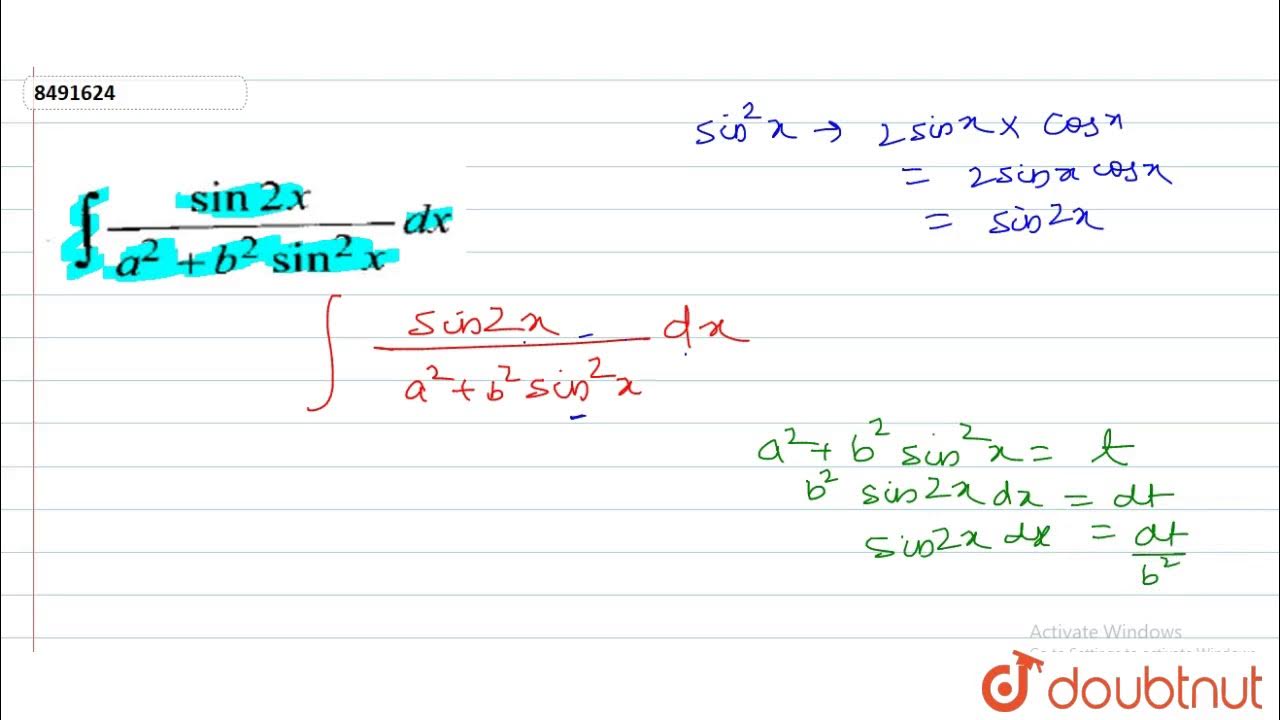 8491624
sin²x → 2sinx × cosx
= 2sinx cosx
= sin2x
∫ sin 2x / (a² + b² sin² x) dx
∫ sin2x / (a² + b² sin²x) dx
a² + b² sin²x = t
b² sin2x dx = dt
sin2x dx = dt / b²
Activate Windows
Go to Settings to activate Windows.
doubtnut